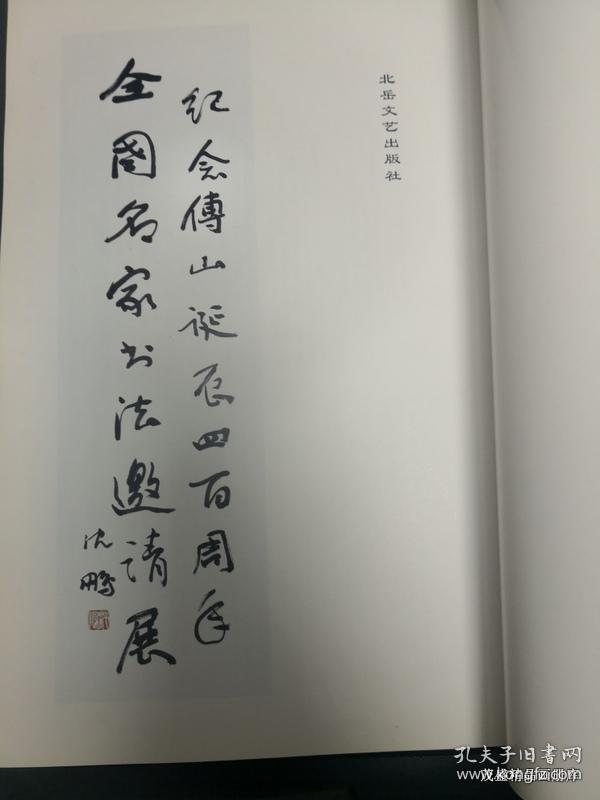 北岳文艺出版社
纪念傅山诞辰四百周年
全國名家书法邀请展
沈鹏
孔夫子旧书网